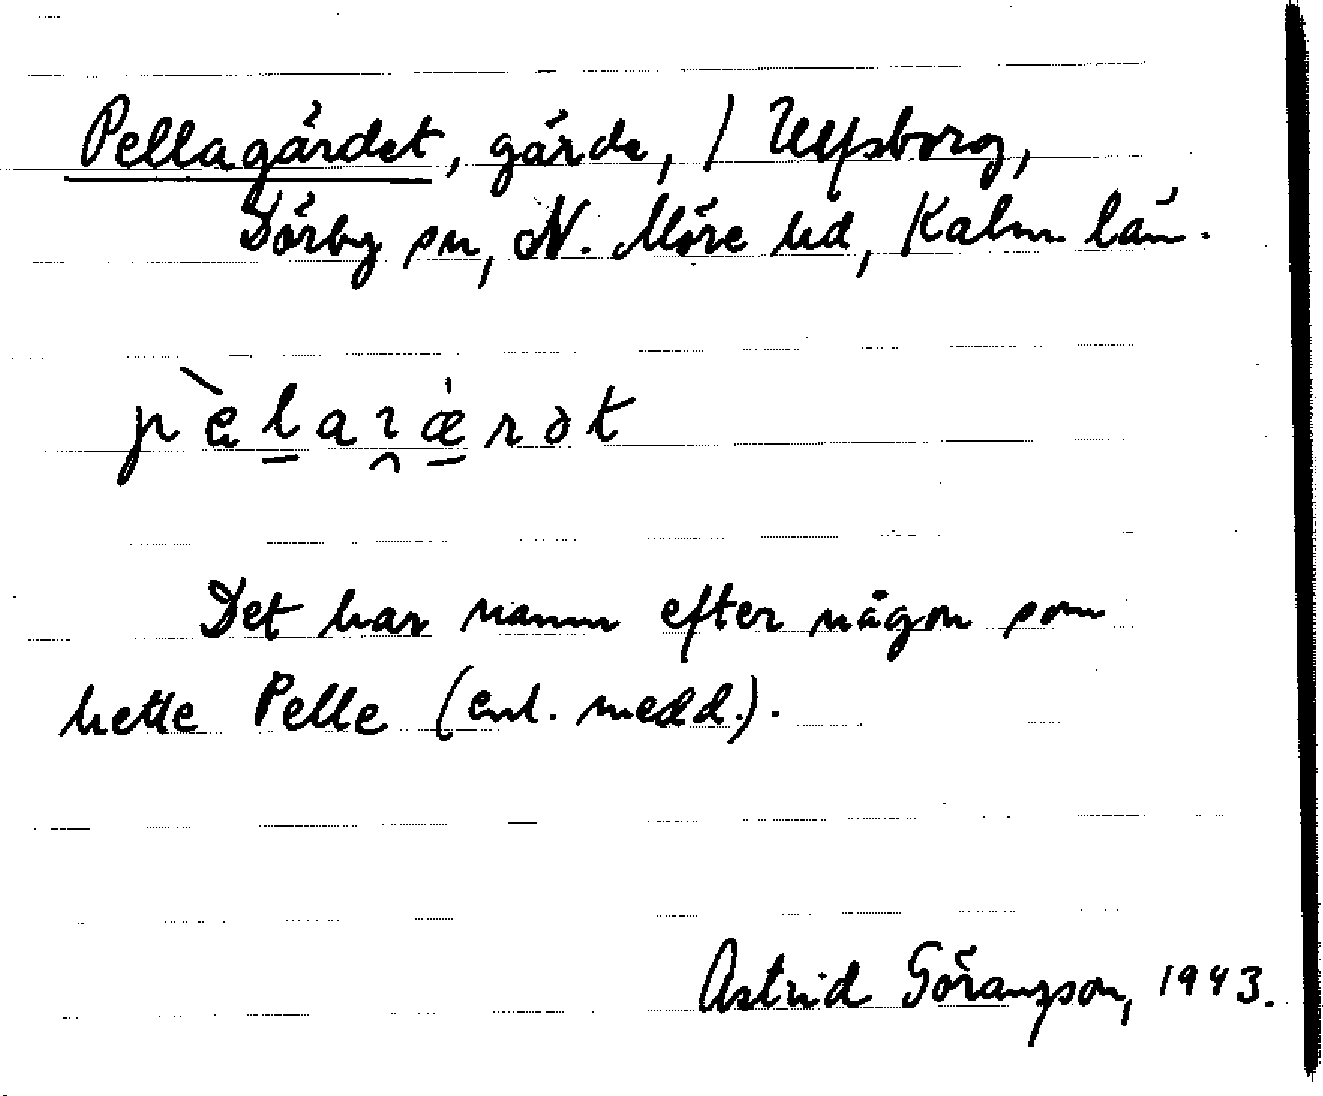 Pellagärdet, gärde, / Ulfsborg,
Dörby sn, N. Möre hd, Kalm. län.
pèlaɿæ̀rət
Det har namn efter någon som
hette Pelle (enl. medd.).
Astrid Göransson, 1943.